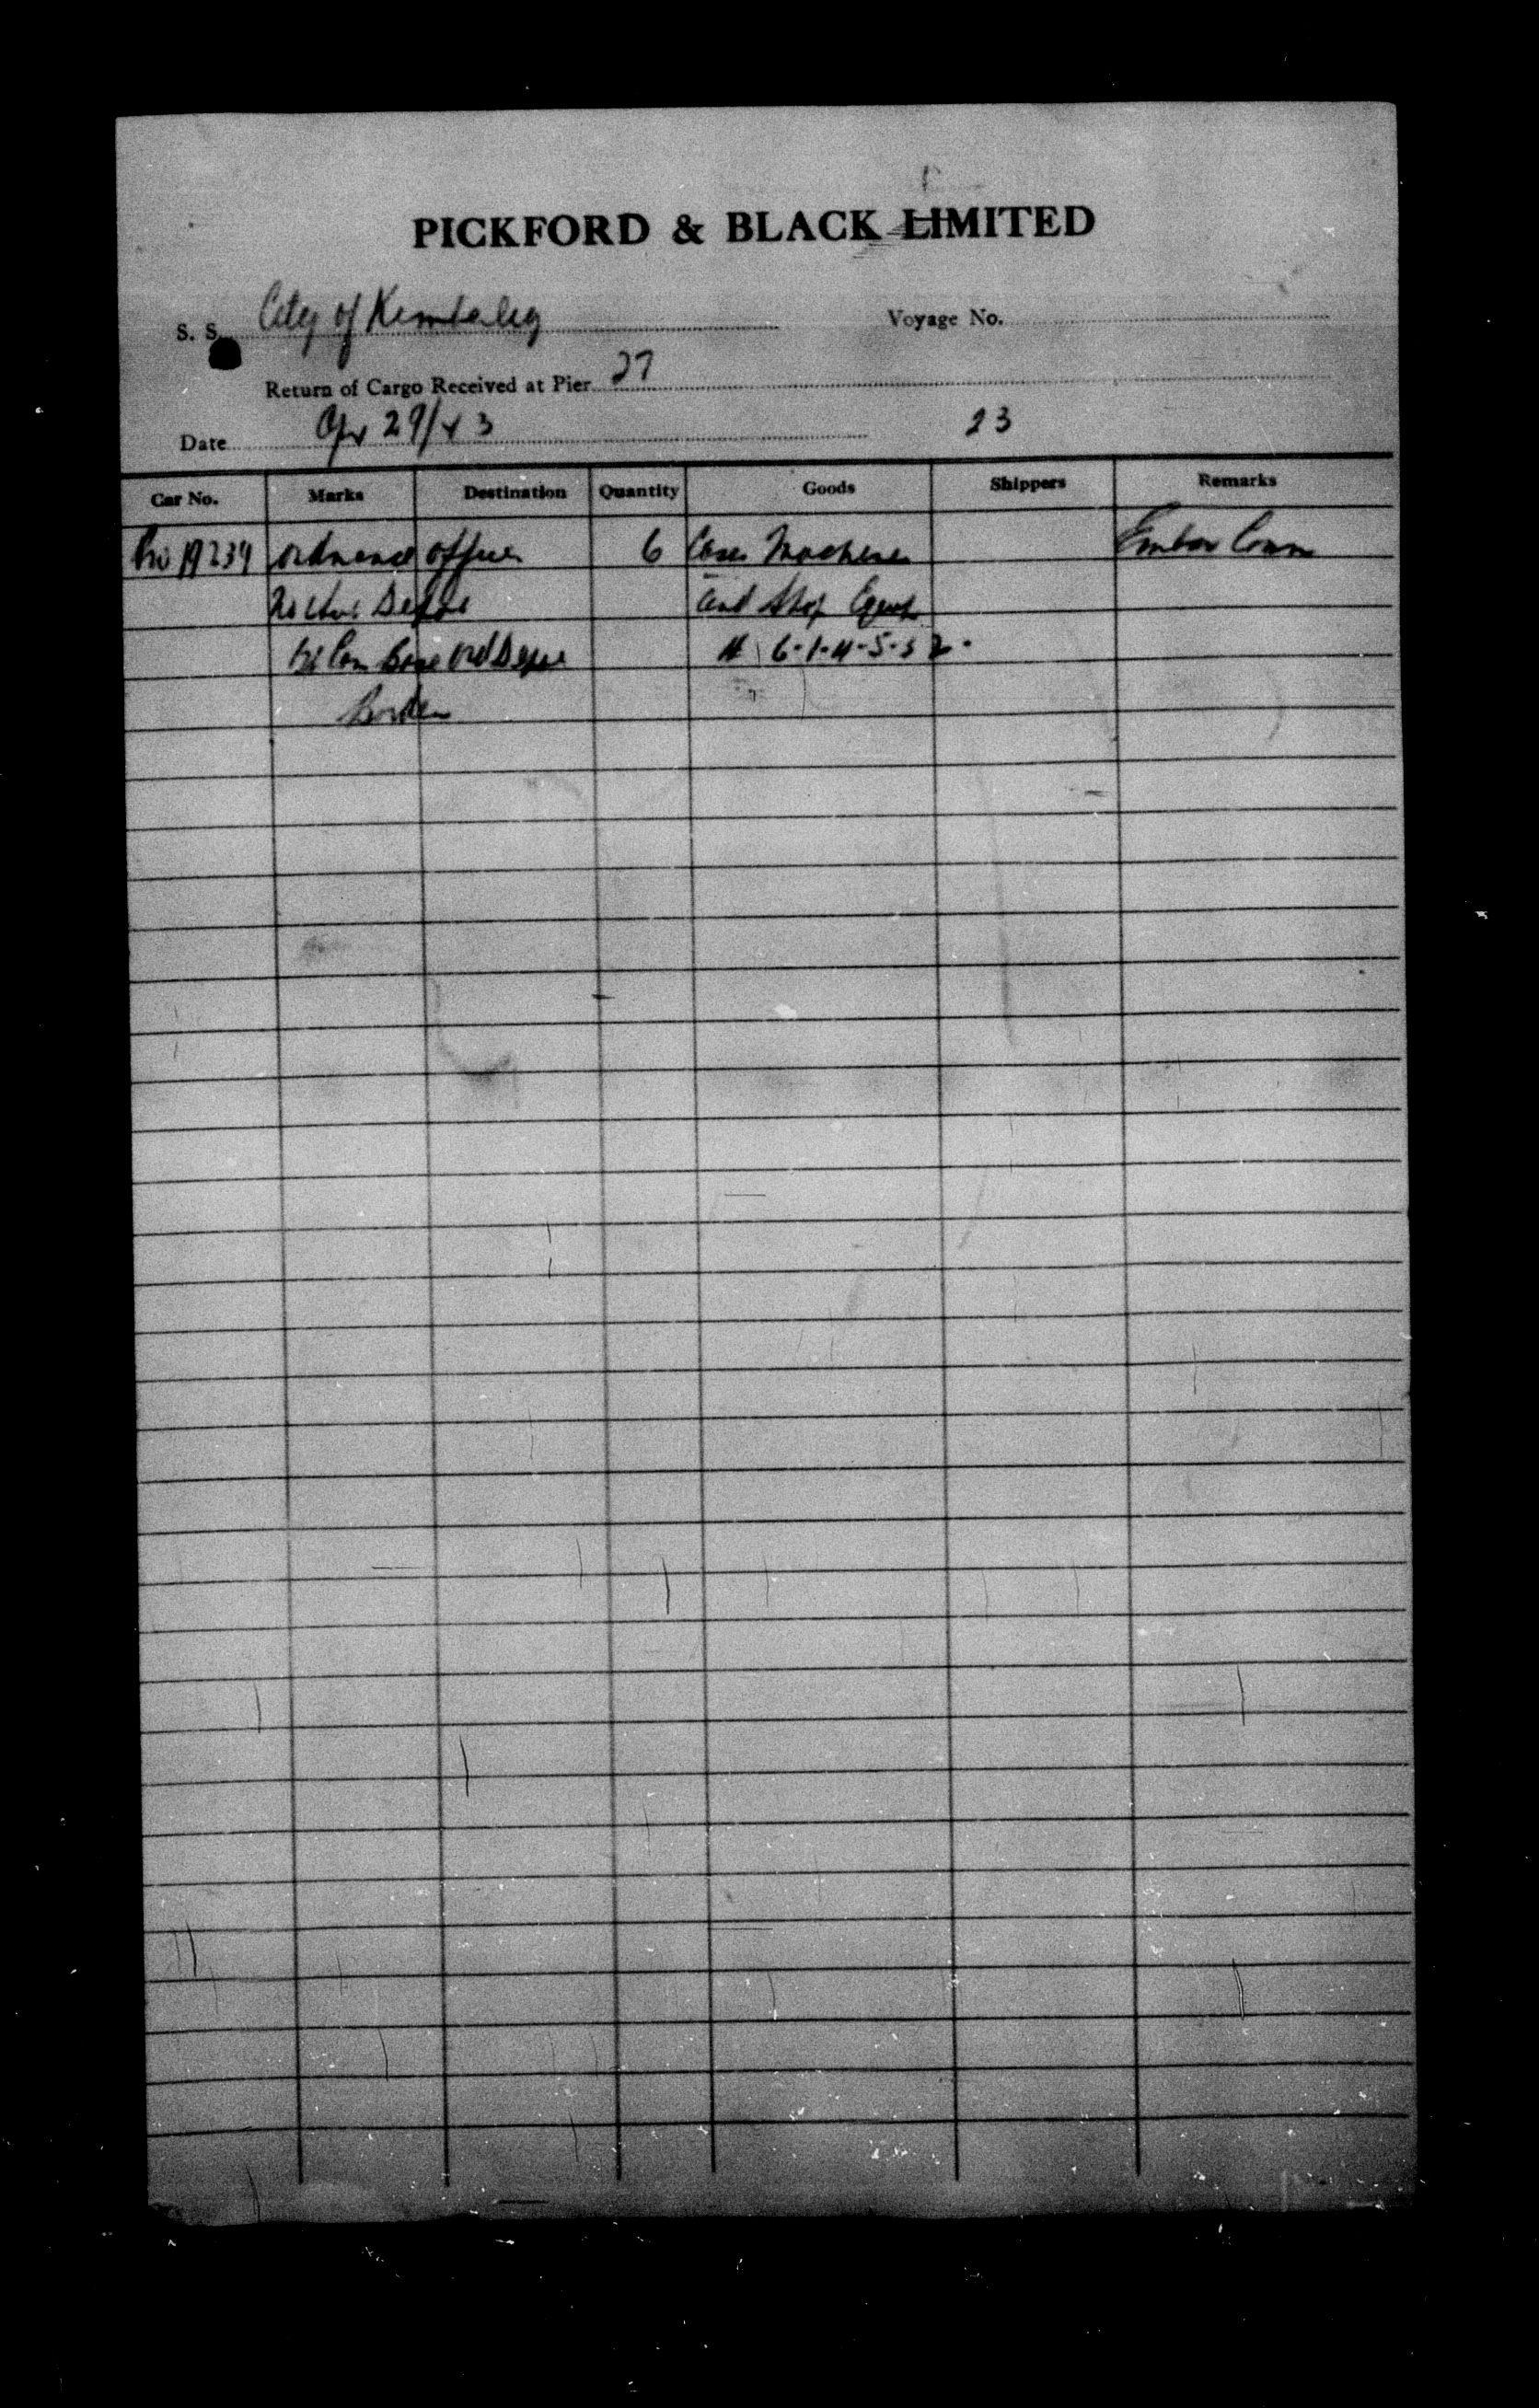 PICKFORD & BLACK LIMITED
S. S. City of Kimberley Voyage No.
Return of Cargo Received at Pier 27
Date Apr 29/43 23
Car No. Marks Destination Quantity Goods Shippers Remarks
19234 Ordnance Officer 6 Cases Machinery Embar Comm
Depot and Shop Equip
Can Base Ord Depot # 6-1-4-5-3 2.
Borden